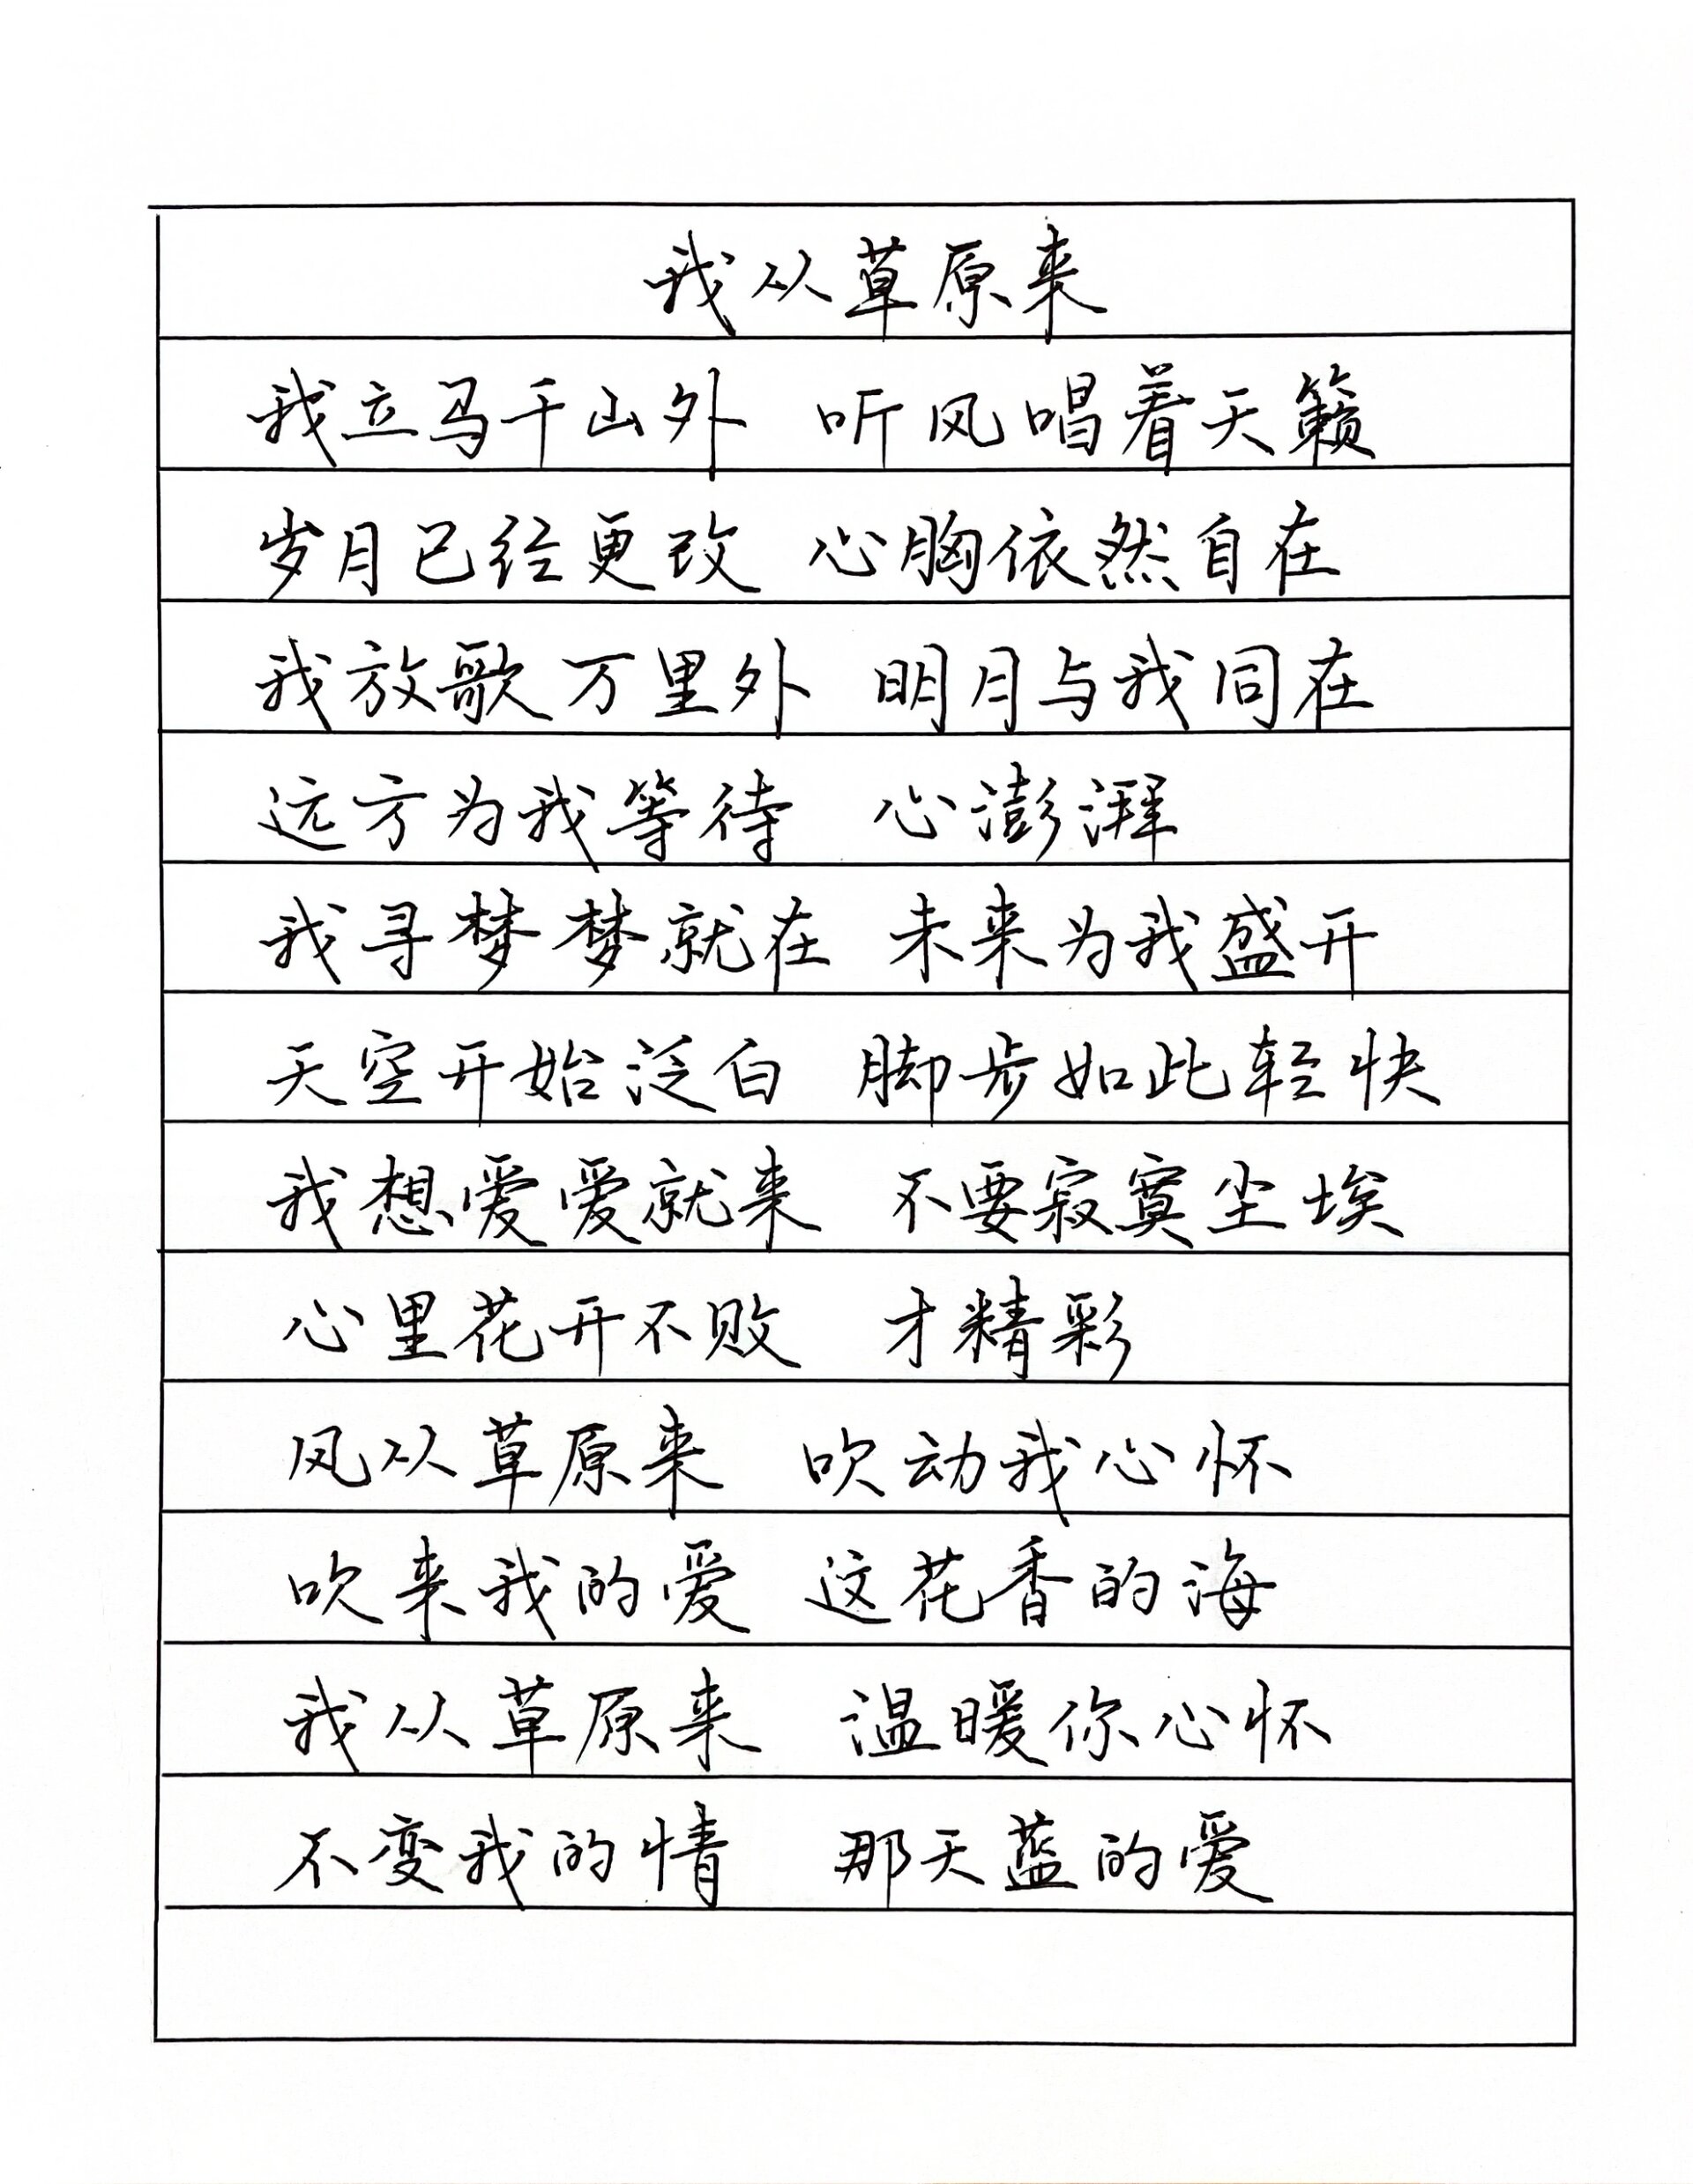 我从草原来
我立马千山外 听风唱着天籁
岁月已经更改 心胸依然自在
我放歌万里外 明月与我同在
远方为我等待 心澎湃
我寻梦梦就在 未来为我盛开
天空开始泛白 脚步如此轻快
我想爱爱就来 不要寂寞尘埃
心里花开不败 才精彩
风从草原来 吹动我心怀
吹来我的爱 这花香的海
我从草原来 温暖你心怀
不变我的情 那天蓝的爱